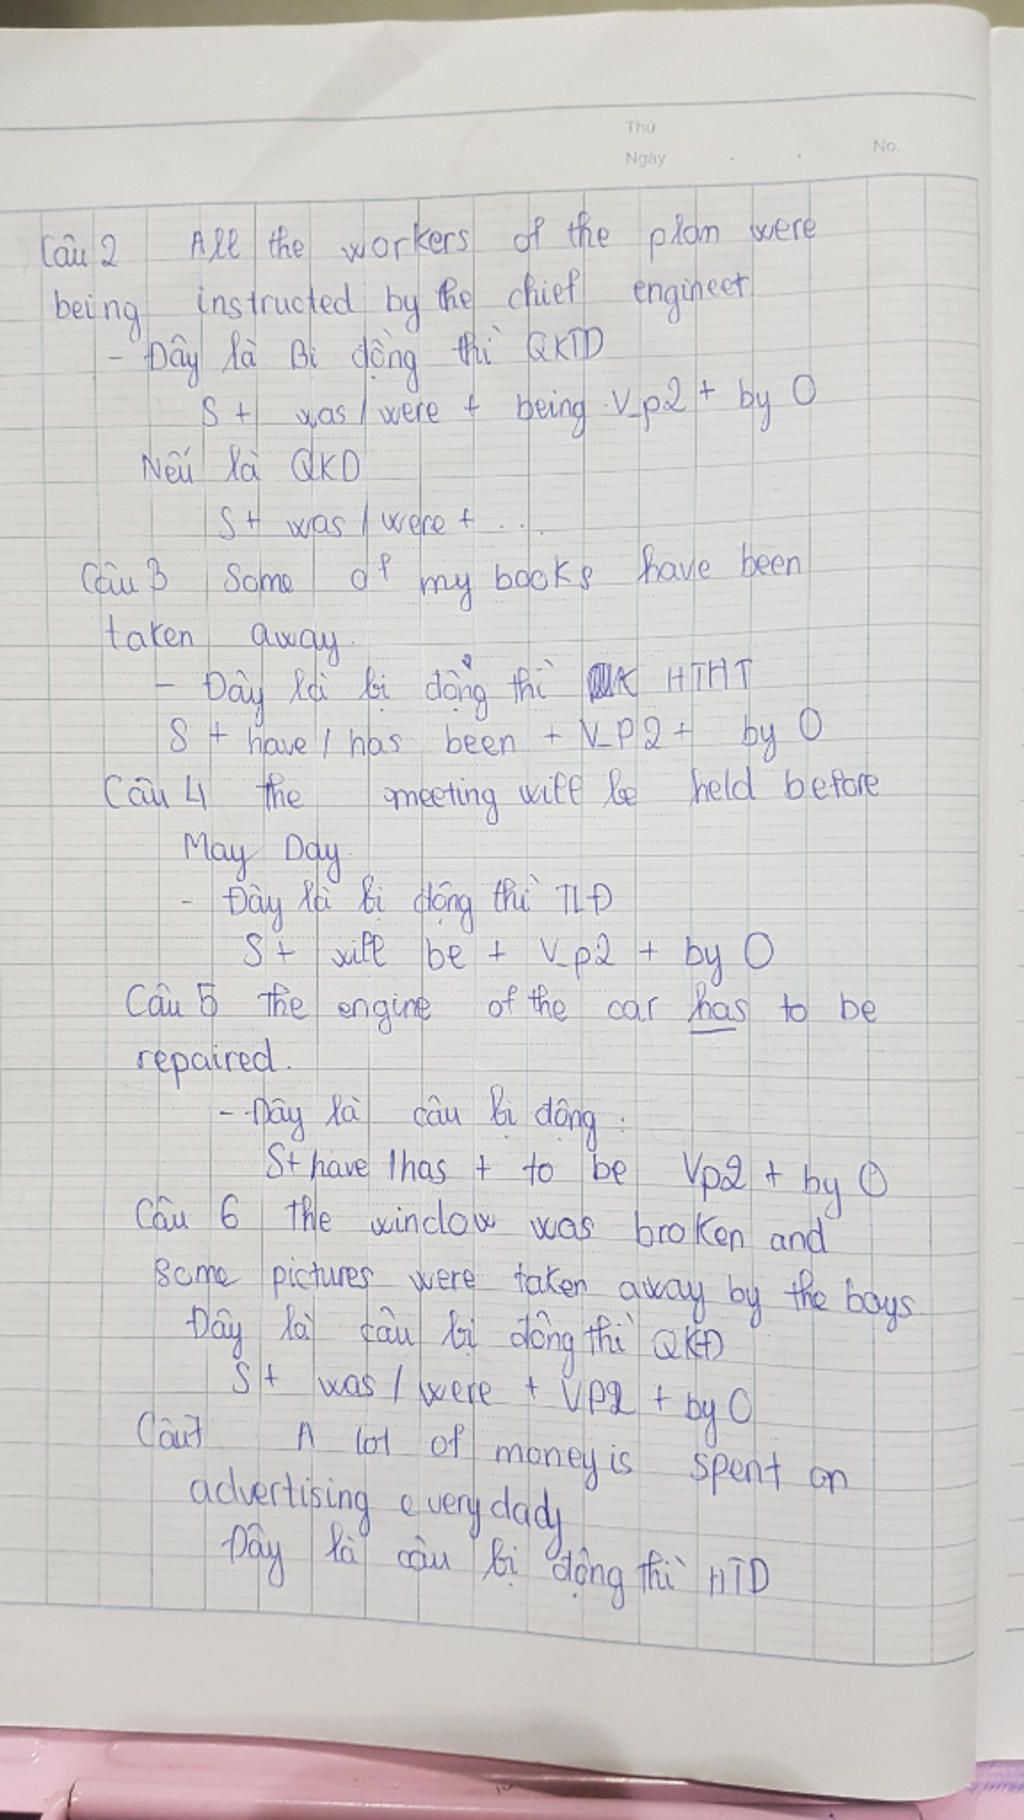 Thứ
Ngày
No.
Câu 2 All the workers of the plan were
being instructed by the chief engineer
- Đây là Bị động thì QKTD
S + was / were + being V_p2 + by O
Nếu là QKD
S + was / were + ...
Câu 3 Some of my books have been
taken away.
- Đây là bị động thì HTHT
S + have / has been + V_P2 + by O
Câu 4 the meeting will be held before
May Day
- Đây là bị động thì TLĐ
S + will be + V_p2 + by O
Câu 5 the engine of the car has to be
repaired.
- Đây là câu bị động.
S + have / has + to be Vp2 + by O
Câu 6 the window was broken and
some pictures were taken away by the boys
Đây là câu bị động thì QKĐ
S + was / were + VP2 + by O
Câu 7 A lot of money is spent on
advertising every dady
Đây là câu bị động thì HTD